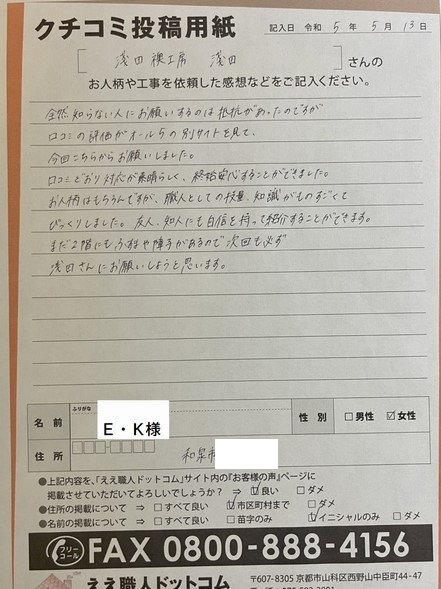 クチコミ投稿用紙
記入日 令和 5 年 5 月 13 日
浅田襖工房 浅田 さんの
お人柄や工事を依頼した感想などをご記入ください。
全然知らない人にお願いするのは抵抗があったのですが
口コミの評価がオール5の別サイトを見て、
今回こちらからお願いしました。
口コミどおり対応が素晴らしく、終始安心することができました。
お人柄はもちろんですが、職人としての技量、知識がものすごくて
びっくりしました。友人、知人にも自信を持って紹介することができます。
まだ2階にもふすまや障子があるので次回も必ず
浅田さんにお願いしようと思います。
ふりがな
名 前 E・K様 性 別 □男性 ☑女性
住 所 和泉市
●上記内容を、「ええ職人ドットコム」サイト内の『お客様の声』ページに
掲載させていただいてよろしいでしょうか? ⇒ ☑良い □ダメ
●住所の掲載について ⇒ □すべて良い ☑市区町村まで □ダメ
●名前の掲載について ⇒ □すべて良い □苗字のみ ☑イニシャルのみ □ダメ
フリーコール FAX 0800-888-4156
ええ職人ドットコム 〒607-8305 京都市山科区西野山中臣町44-47